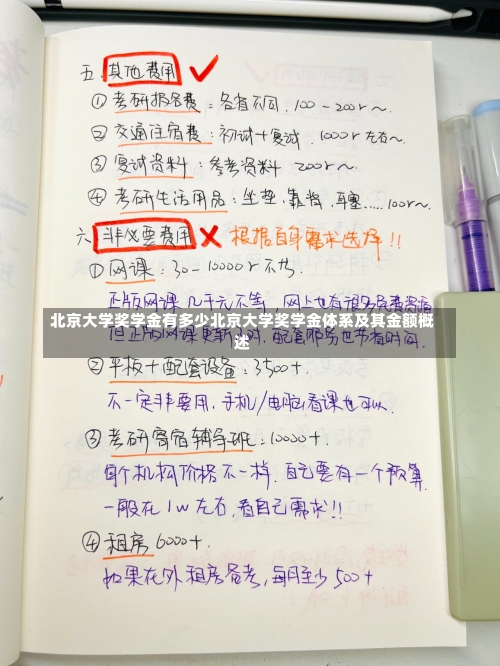 五、其他费用 ✓
① 考研报名费：各省不同，100-200r～
② 交通住宿费：初试+复试，1000r左右～
③ 复试资料：参考资料 200r～
④ 考研生活用品：坐垫、靠背、耳塞.....100r～
六、非必要费用 ✗ 根据自身需求选择!!
① 网课：30-10000r不等
正版网课几千元不等，网上也有很多免费
北京大学奖学金有多少北京大学奖学金体系及其金额概
述
但正版网课更新 配套服务也节省时间.
② 平板+配套设备：3500+.
不一定非要用，手机/电脑看课也可以.
③ 考研寄宿辅导班：10000+.
每个机构价格不一样，自己要有一个预算.
一般在1w左右，看自己需求!!
④ 租房 6000+.
如果在外租房备考，每月至少500+